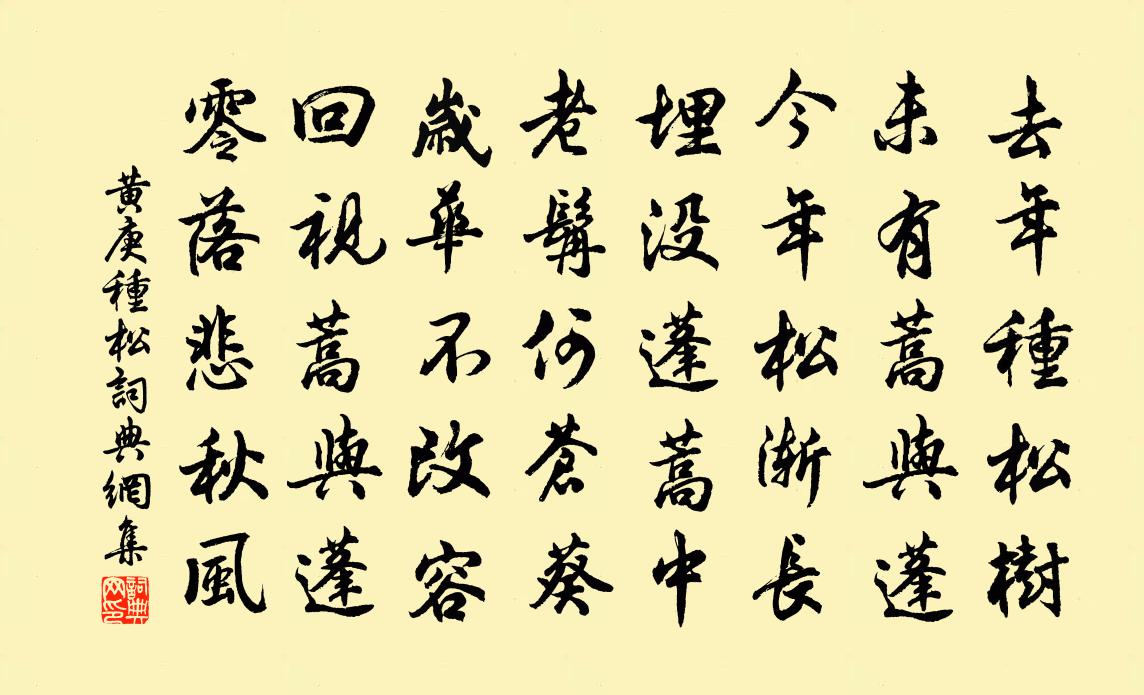 去年種松樹
未有蒿與蓬
今年松漸長
埋没蓬蒿中
老髯何蒼葵
歲華不改容
回視蒿與蓬
零落悲秋風
黄庚種松詞典網集
詞典网印